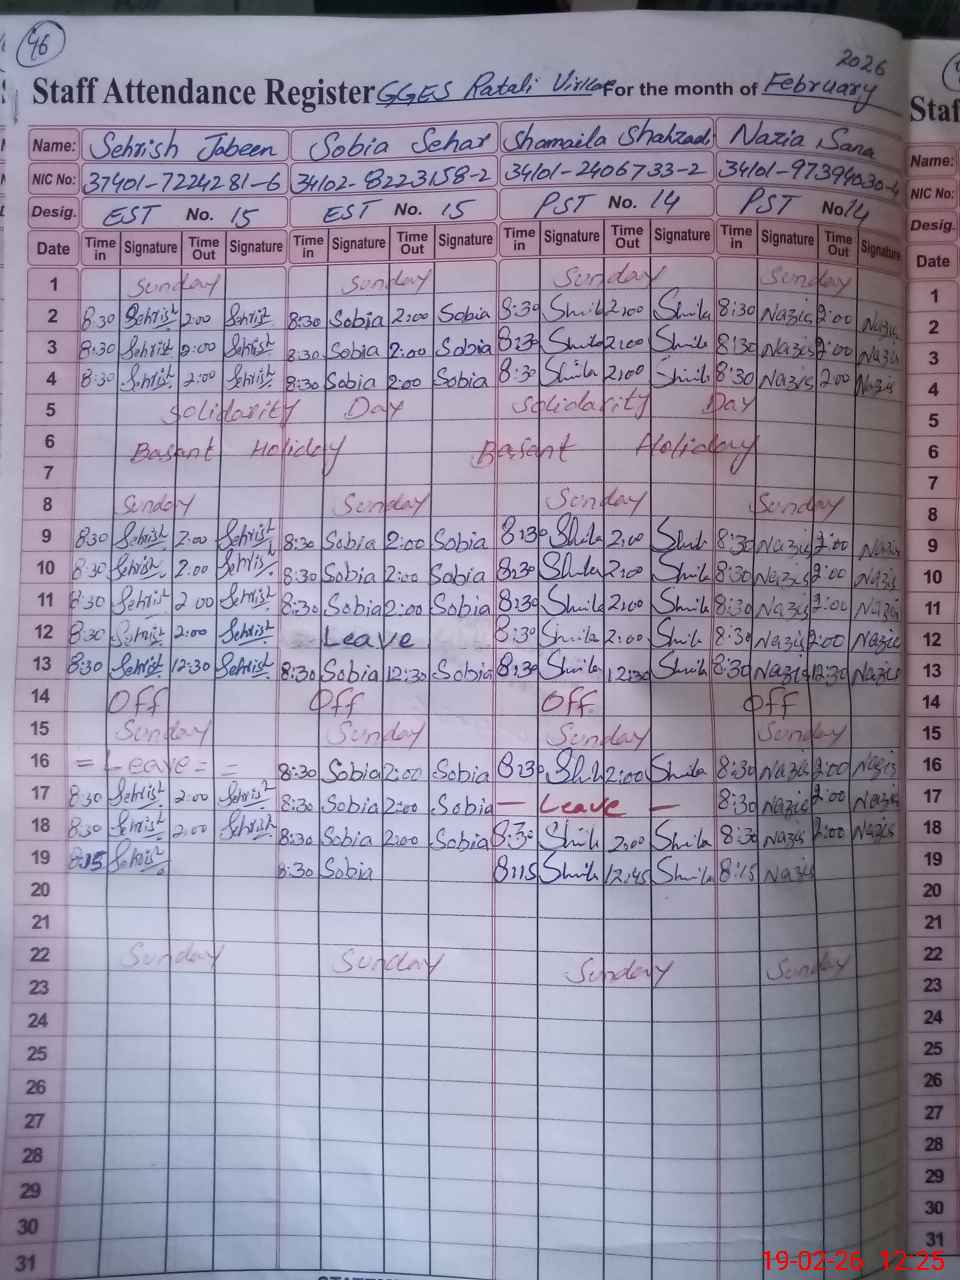 46
2026
Staff Attendance Register GGES Ratali Virkan For the month of February
Name: Sehrish Jabeen Sobia Sehar Shamaila Shahzadi Nazia Sana
NIC No: 37401-7224281-6 34102-8223158-2 34101-2406733-2 34101-97394030-4
Desig. EST No. 15 EST No. 15 PST No. 14 PST No. 14
Date Time in Signature Time Out Signature Time in Signature Time Out Signature Time in Signature Time Out Signature Time in Signature Time Out Signature
1 Sunday Sunday Sunday Sunday
2 8:30 Sehrish 2:00 Sehrish 8:30 Sobia 2:00 Sobia 8:30 Shmila 2:00 Shmila 8:30 Nazia 2:00 Nazia
3 8:30 Sehrish 2:00 Sehrish 8:30 Sobia 2:00 Sobia 8:30 Shmila 2:00 Shmila 8:30 Nazia 2:00 Nazia
4 8:30 Sehrish 2:00 Sehrish 8:30 Sobia 2:00 Sobia 8:30 Shmila 2:00 Shmila 8:30 Nazia 2:00 Nazia
5 Solidarity Day Solidarity Day
6 Basant Holiday Basant Holiday
7
8 Sunday Sunday Sunday Sunday
9 8:30 Sehrish 2:00 Sehrish 8:30 Sobia 2:00 Sobia 8:30 Shmila 2:00 Shmila 8:30 Nazia 2:00 Nazia
10 8:30 Sehrish 2:00 Sehrish 8:30 Sobia 2:00 Sobia 8:30 Shmila 2:00 Shmila 8:30 Nazia 2:00 Nazia
11 8:30 Sehrish 2:00 Sehrish 8:30 Sobia 2:00 Sobia 8:30 Shmila 2:00 Shmila 8:30 Nazia 2:00 Nazia
12 8:30 Sehrish 2:00 Sehrish Leave 8:30 Shmila 2:00 Shmila 8:30 Nazia 2:00 Nazia
13 8:30 Sehrish 12:30 Sehrish 8:30 Sobia 12:30 Sobia 8:30 Shmila 12:30 Shmila 8:30 Nazia 12:30 Nazia
14 Off Off Off Off
15 Sunday Sunday Sunday Sunday
16 = Leave = = 8:30 Sobia 2:00 Sobia 8:30 Shmila 2:00 Shmila 8:30 Nazia 2:00 Nazia
17 8:30 Sehrish 2:00 Sehrish 8:30 Sobia 2:00 Sobia — Leave — 8:30 Nazia 2:00 Nazia
18 8:30 Sehrish 2:00 Sehrish 8:30 Sobia 2:00 Sobia 8:30 Shmila 2:00 Shmila 8:30 Nazia 2:00 Nazia
19 8:15 Sehrish 8:30 Sobia 8:15 Shmila 12:45 Shmila 8:15 Nazia
20
21
22 Sunday Sunday Sunday Sunday
23
24
25
26
27
28
29
30
31
Staf
Name:
NIC No:
Desig.
Date
1
2
3
4
5
6
7
8
9
10
11
12
13
14
15
16
17
18
19
20
21
22
23
24
25
26
27
28
29
30
31
19-02-26 12:25